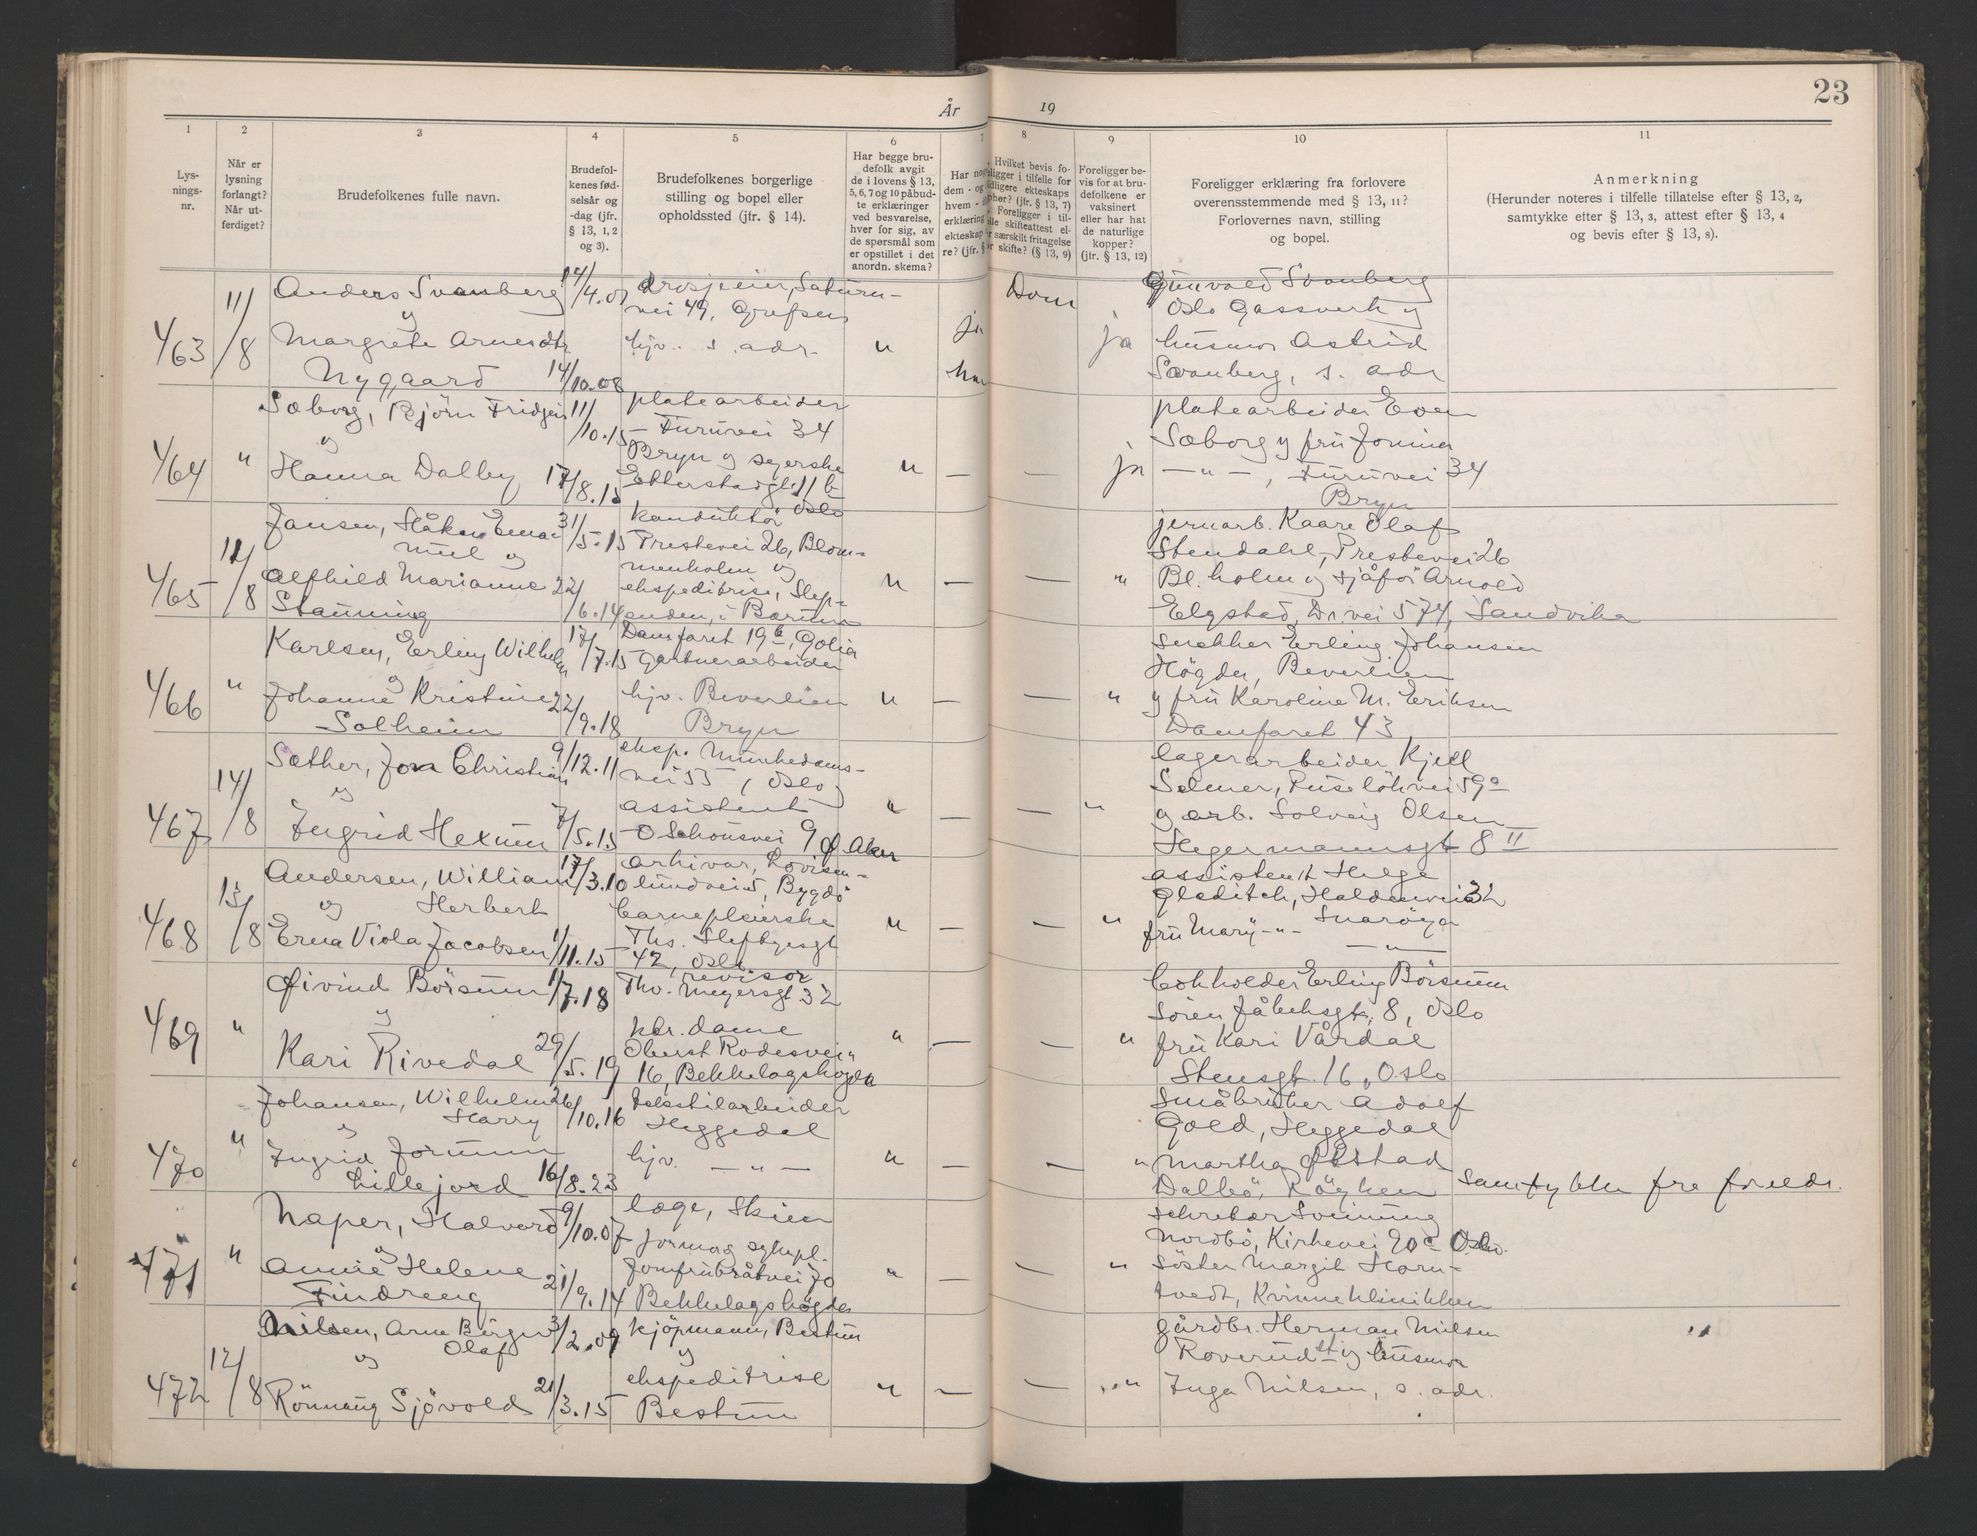 År
19
23
1
2
3
4
5
6
7
8
9
10
11
Lys-
nings-
nr.
Når er
lysning
forlangt?
Når ut-
ferdiget?
Brudefolkenes fulle navn.
Brudefol-
kenes fød-
selsår og
-dag (jfr.
§ 13, 1, 2
og 3).
Brudefolkenes borgerlige
stilling og bopel eller
opholdssted (jfr. § 14).
Har begge bru-
defolk avgit
de i lovens § 13,
5, 6, 7 og 10 påbud-
te erklæringer
ved besvarelse,
hver for sig, av
de spørsmål som
er opstillet i det
anordn. skema?
Har nog
dem - og
hvem -
erklæring
ekteskap
re? (jfr. §
Hvilket bevis fo-
ligger i tilfelle for
idligere ekteskaps
pher? (jfr. § 13, 7)
Foreligger i til-
lle skifteattest el-
r særskilt fritagelse
or skifte? (§ 13, 9)
Foreligger be-
vis for at bru-
defolkene er
vaksinert
eller har hat
de naturlige
kopper?
(jfr. § 13, 12)
Foreligger erklæring fra forlovere
overensstemmende med § 13, 11?
Forlovernes navn, stilling
og bopel.
Anmerkning
(Herunder noteres i tilfelle tillatelse efter § 13, 2,
samtykke efter § 13, 3, attest efter § 13, 4
og bevis efter § 13, 8).
463
11/8
Anders Svanberg
og
Margrete Arnesdtr
Nygaard
14/4.07
14/10.08
drosjeeier, Saturn-
vei 49, Grefsen
hjv. s. adr.
"
ja
Dom
ja
Gunvald Svanberg
Oslo Gassverk og
husmor Astrid
Svanberg, s. adr
464
"
Sæborg, Bjørn Fridgeir
og
Hanna Dalby
11/10.15
17/8.15
platearbeider
Furuvei 34
Bryn og syerske
Etterstadgt. 11 b
Oslo
"
—
—
ja
platearbeider Even
Sæborg og fru Jonina
— " —, Furuvei 34
Bryn
465
11/8
Jansen, Håkon Ema-
nuel og
Alfhild Marianne
Stanning
31/5.15
22/6.14
konduktør
Prestevei 26, Blom-
menholm og
ekspeditrise, Slep-
enden, i Bærum
"
—
—
"
jernarb. Kaare Olaf
Stendahl, Prestevei 26
Bl.holm og sjåfør Arnold
Elgstad, Dr.vei 574, Sandvika
466
"
Karlsen, Erling Wilhelm
og
Johanne Kristine
Solheim
17/7.15
22/9.18
Damfaret 19 b, Golia
gartnerarbeider
hjv. Beverlien
Bryn
"
—
—
"
snekker Erling Johansen
Høgda, Beverlien
og fru Karoline M. Eriksen
Damfaret 43
467
14/8
Sæther, Jon Christian
og
Ingrid Hexum
9/12.11
7/5.15
eksp. Munkedams-
vei 55, Oslo og
assistent
O Schousvei 9 Ø Aker
"
—
—
"
lagerarbeider Kjell
Selmer, Riseløkvei 59 a
og arb. Solveig Olsen
Hegermannsgt 8 II
468
13/8
Andersen, William
og Herbert
Erna Viola Jacobsen
17/3.10
1/11.15
arkivar, Lovisen-
lundvei 5, Bygdø
barnepleierske
Ths. Heftyesgt
42, Oslo
"
—
—
"
assistent Helge
Gleditch, Haldenvei 32
Snarøya
fru Mary - " -
— " —
469
"
Øivind Börsum
og
Kari Rivedal
1/7.18
29/5.19
revisor
Thv. Meyersgt 32
ktr. dame
Oberst Rodesvei
16, Bekkelagshøgda
"
—
—
"
bokholder Erling Börsum
Søren Jåbeksgt. 8, Oslo
fru Kari Vårdal
Stensgt. 16, Oslo
470
"
Johansen, Wilhelm
Harry
og
Ingrid Jorunn
Lillejord
26/10.16
16/8.23
tekstilarbeider
Heggedal
hjv. — " —
"
—
—
"
Småbruker Adolf
Gold, Heggedal
Martha Økstad
Dalbö, Röyken
Samtykke fra foreldr.
471
"
Naper, Halvord
og
Annie Helene
Findreng
9/10.07
21/9.14
lege, Skien
Jomfrubråtvei 70
Bekkelagshøgda
"
—
—
"
sekretær Svinnung
Nordbö, Kirkevei 90 c Oslo.
Søster Margit Horn-
tvedt, Kvinneklinikken
472
12/8
Nilsen, Arne Birger
Olaf
og
Rønnaug Sjøvold
3/2.09
21/3.15
kjøpmann, Bestum
og
ekspeditrise
Bestum
"
—
—
"
gårdbr. Herman Nilsen
Roverud st og husmor
Inga Nilsen, s. adr.